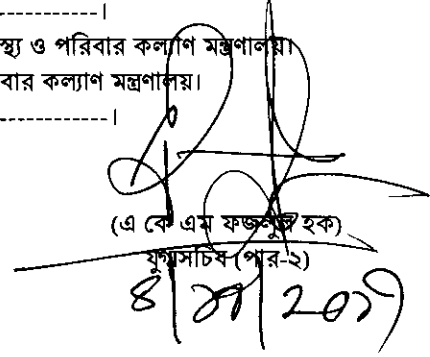 -----------।
স্থ্য ও পরিবার কল্যাণ মন্ত্রণালয়।
বার কল্যাণ মন্ত্রণালয়।
-----------।
(এ কে এম ফজলুল হক)
যুগ্মসচিব (পার-২)